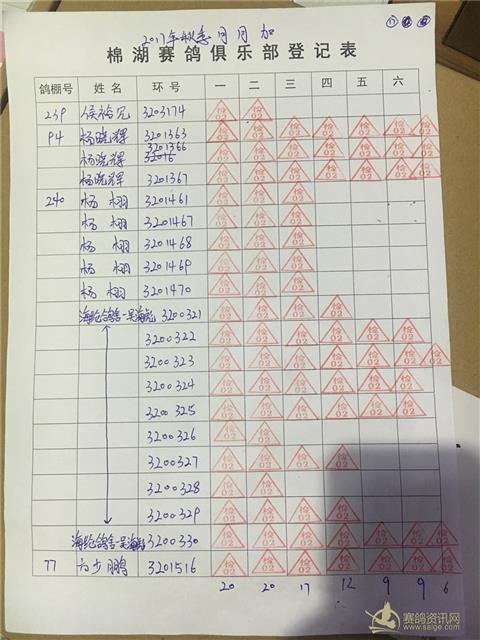 2017年秋季月月加
棉湖赛鸽俱乐部登记表
鸽棚号 姓名 环号 一 二 三 四 五 六
239 侯裕冗 3203174 检02 检02
94 杨晓辉 3201363 检02 检02 检02 检02 检02 检02 检02
杨晓辉 3201366 检02 检02 检02 检02 检02 检02 检02
杨晓辉 3201367 检02 检02 检02 检02 检02 检02 检02
240 杨栩 3201461 检02 检02 检02
杨栩 3201467 检02 检02 检02
杨栩 3201468 检02 检02 检02
杨栩 3201469 检02 检02 检02
杨栩 3201470 检02 检02 检02
海纶鸽舍-吴海彪 3200321 检02 检02 检02 检02
3200322 检02 检02 检02 检02 检02 检02
3200323 检02 检02 检02 检02 检02 检02 检02
3200324 检02 检02 检02 检02 检02 检02
3200325 检02 检02 检02 检02 检02 检02
3200326 检02 检02
3200327 检02 检02 检02 检02
3200328 检02 检02
3200329 检02 检02 检02 检02
海纶鸽舍-吴海彪 3200330 检02 检02 检02 检02 检02 检02 检02
77 方少鹏 3201516 检02 检02 检02 检02 检02 检02 检02
20 20 17 12 9 9 6
赛鸽资讯网
www.saige.com